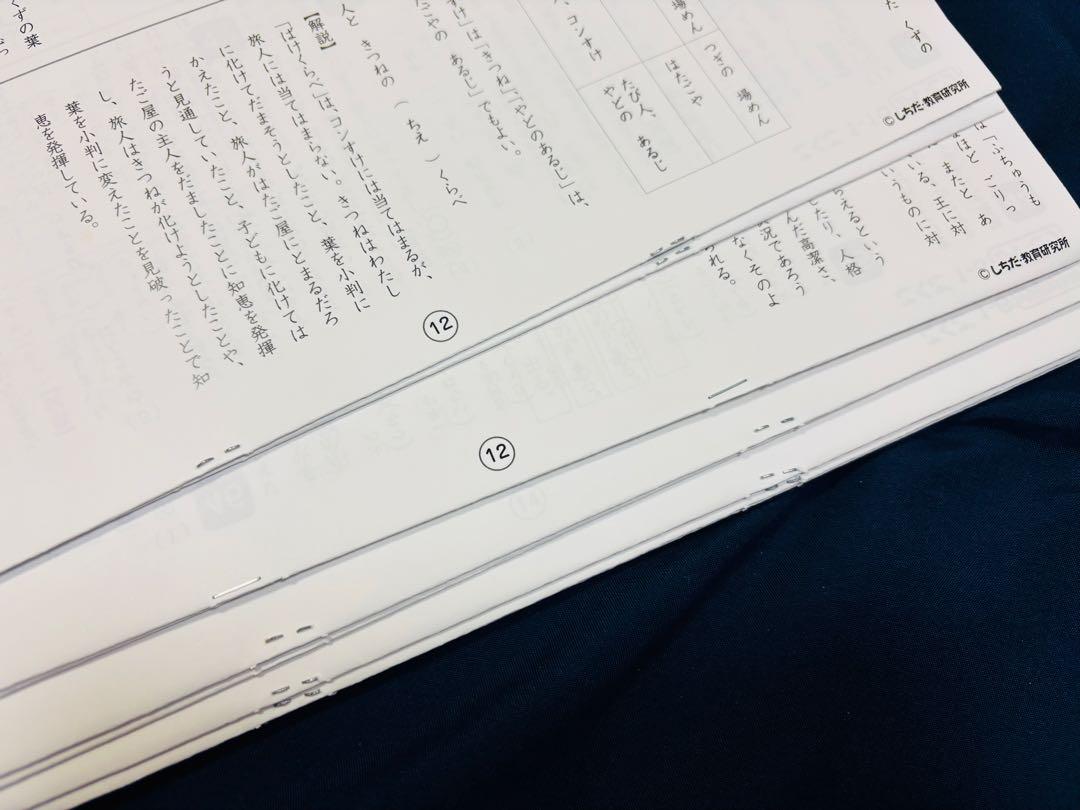 た くずの
くずの葉
場めん
つぎの 場めん
はたごや
、コンすけ
たび人、あるじ
やどの
すけ」は「きつね」「やどのあるじ」は、
たごやの あるじ」でもよい。
人と きつねの ( ちえ ) くらべ
【解説】
「ばけくらべ」は、コンすけには当てはまるが、
旅人には当てはまらない。きつねはわたし
に化けてだまそうとしたこと、葉を小判に
かえたこと、旅人がはたご屋にとまるだろ
うと見通していたこと、子どもに化けては
たご屋の主人をだましたことに知恵を発揮
し、旅人はきつねが化けようとしたことや、
葉を小判に変えたことを見破ったことで知
恵を発揮している。
12
©しちだ・教育研究所
は「ふちゅうも
ほど ごりっ
またと あ
いる、王に対
いうものに対
らえるという
したり、人格
んだ高潔さ、
況であろう
なくそのよ
れる。
12
©しちだ・教育研究所